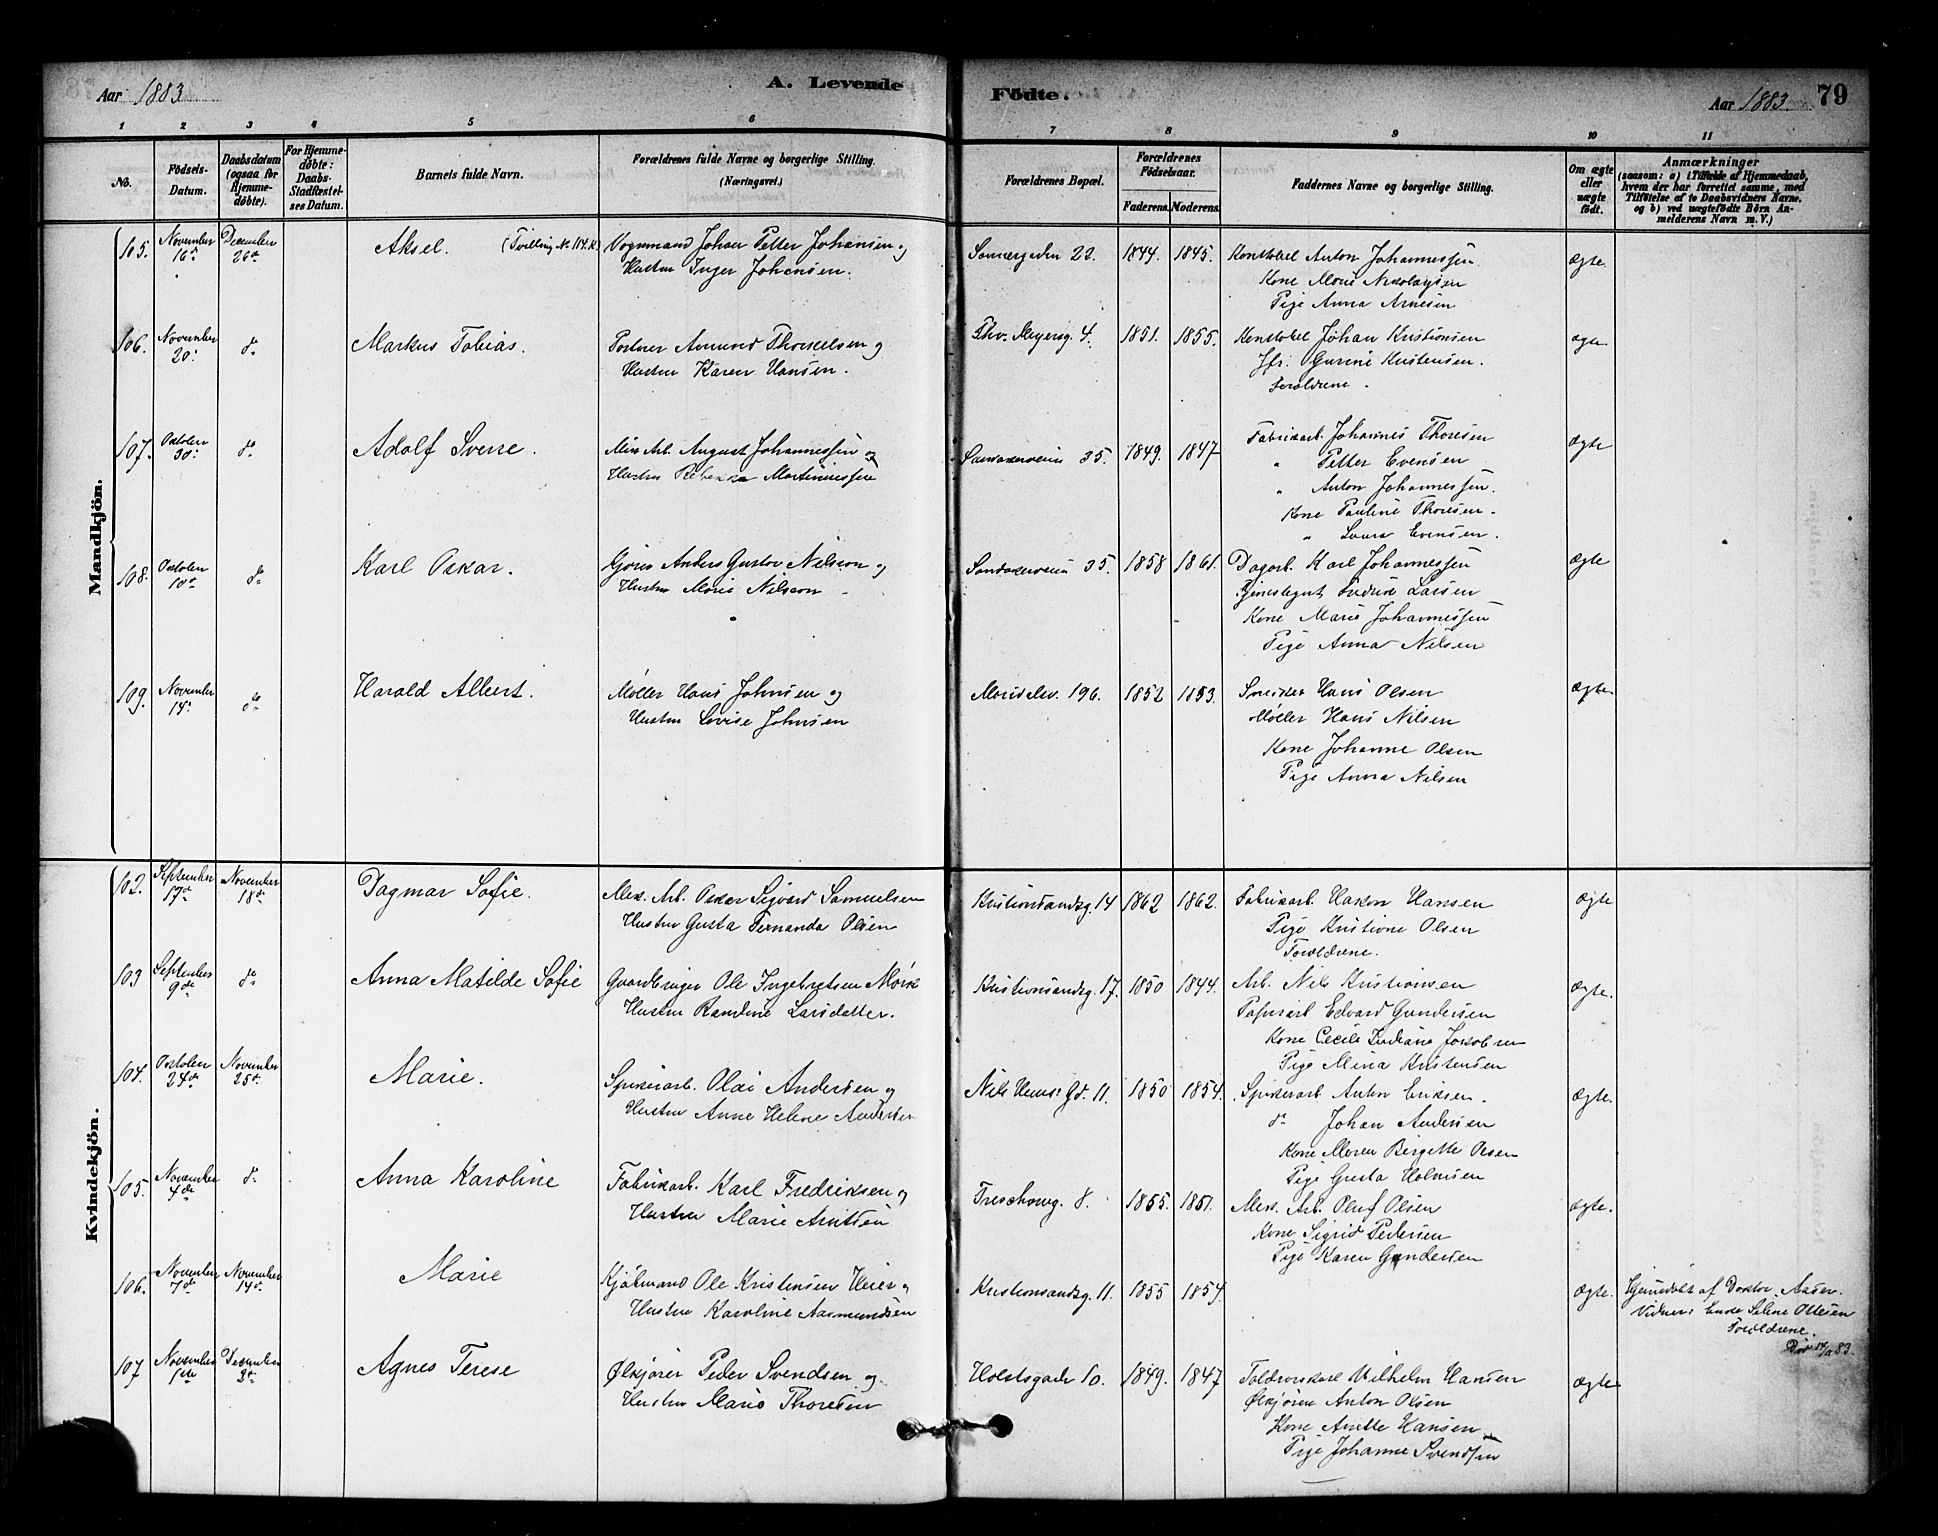 Aar 1883
A. Levende
Födte.
Aar 1883.
79
1 2 3 4 5 6 7 8 9 10 11
No.
Födsels-Datum.
Daabsdatum (ogsaa for Hjemmedöbte).
For Hjemmedöbte: Daabs-Stadfæstelses Datum.
Barnets fulde Navn.
Forældrenes fulde Navne og borgerlige Stilling.
(Næringsvei.)
Forældrenes Bopæl.
Forældrenes Födselsaar.
Faderens. Moderens.
Faddernes Navne og borgerlige Stilling.
Om ægte eller uægte födt.
Anmærkninger
(saasom: a) i Tilfælde af Hjemmedaab,
hvem der har forrettet samme, med
Tilföielse af to Daabsvidners Navne.
og b) ved uægtefödte Börn An-
melderens Navn m. V.)
Mandkjön.
105. November 16de December 26de Aksel. (Tvilling No 114. K) Vognmand Johan Petter Johansen og 22. 1844. 1845. Konstabel Anton Johannessen ægte
Hustru Inger Johansen. Kone Marie Nikolaysen
Pige Anna Arnesen
106. November 20. do Markus Tobias. Amund Thorkelsen og Thv. Meyersg. 4. 1851. 1855. Konstabel Johan Kristiansen ægte
Hustru Karen Hansen. Jfr. Gurine Kristensen.
Foreldrene.
107. Oktober 30. do Adolf Sverre. Mek. Arb. August Johannessen og Sandakerveien 35. 1849. 1847 Fabrikarb. Johannes Thoresen ægte
Hustru Rebekka Martinussen " Petter Evensen
" Anton Johannessen.
Kone Pauline Thoresen.
" Laura Evensen.
108. Oktober 10de do Karl Oskar. Anders Gustav Nilsson og Sandakerveien 35. 1858 1861. Dagarb. Karl Johannessen ægte
Hustru Marie Nilsson Fredrik Larsen
Kone Marie Johannessen
Pige Anna Nilsen
109. November 14. do Harald Albert. Møller Hans Johnsen og 196. 1852 1853. Snekker Hans Olsen ægte
Hustru Lovise Johnsen Møller Hans Nilsen
Kone Johanne Olsen
Pige Anna Nilsen
Kvindekjön.
102. September 17de November 18de Dagmar Sofie. Mek. Arb. Oskar Sigvard Samuelsen Kristiansandsg. 14 1862 1862. Fabrikarb. Hakon Hansen ægte
Hustru Gusta Fernanda Olsen Pige Kristiane Olsen
Foreldrene.
103 September 9de do Anna Matilde Sofie Gaardbruger Ole Ingebretsen Mørk Kristiansandsg. 17. 1850 1844. Arb. Nils Kristiansen ægte.
Hustru Randine Larsdatter. Papirarb Edvard Gundersen
Kone Cecilie Juliane Jakobsen
Pige Mina Kristensen
104. Oktober 24de November 25de Marie. Spikerarb. Olai Andersen og Nils Hens. Gd. 11. 1850 1854. Spikerarb Anton Eriksen. ægte.
Hustru Anne Helene Andersen do Johan Andersen
Kone Maren Birgitte Olsen
Pige Gusta Holmsen
105. November 4de do Anna Karoline Fabrikarb. Karl Fredriksen og Treschowg. 8. 1855. 1851. Mek. Arb. Oluf Olsen ægte.
Hustru Marie Arntsen Kone Sigrid Pedersen
Pige Karen Gundersen
106. November 7de November 14de Marie Kjøbmand Ole Kristensen Heier og Kristiansandsg. 11. 1855 1854. ægte. Hjemedøbt af Doktor Aaser.
Hustru Karoline Aasmundsen Vidner: Enke Seline Ottesen
Foreldrene.
Død 14/11 83.
107 November 1ste December 2de Agnes Terese Ølkjører Peder Svendsen og Holstsgade 10. 1849. 1847 Wilhelm Hansen ægte
Hustru Marie Thoresen Ølkjører Anton Olsen
Kone Anette Hansen
Pige Johanne Svendsen